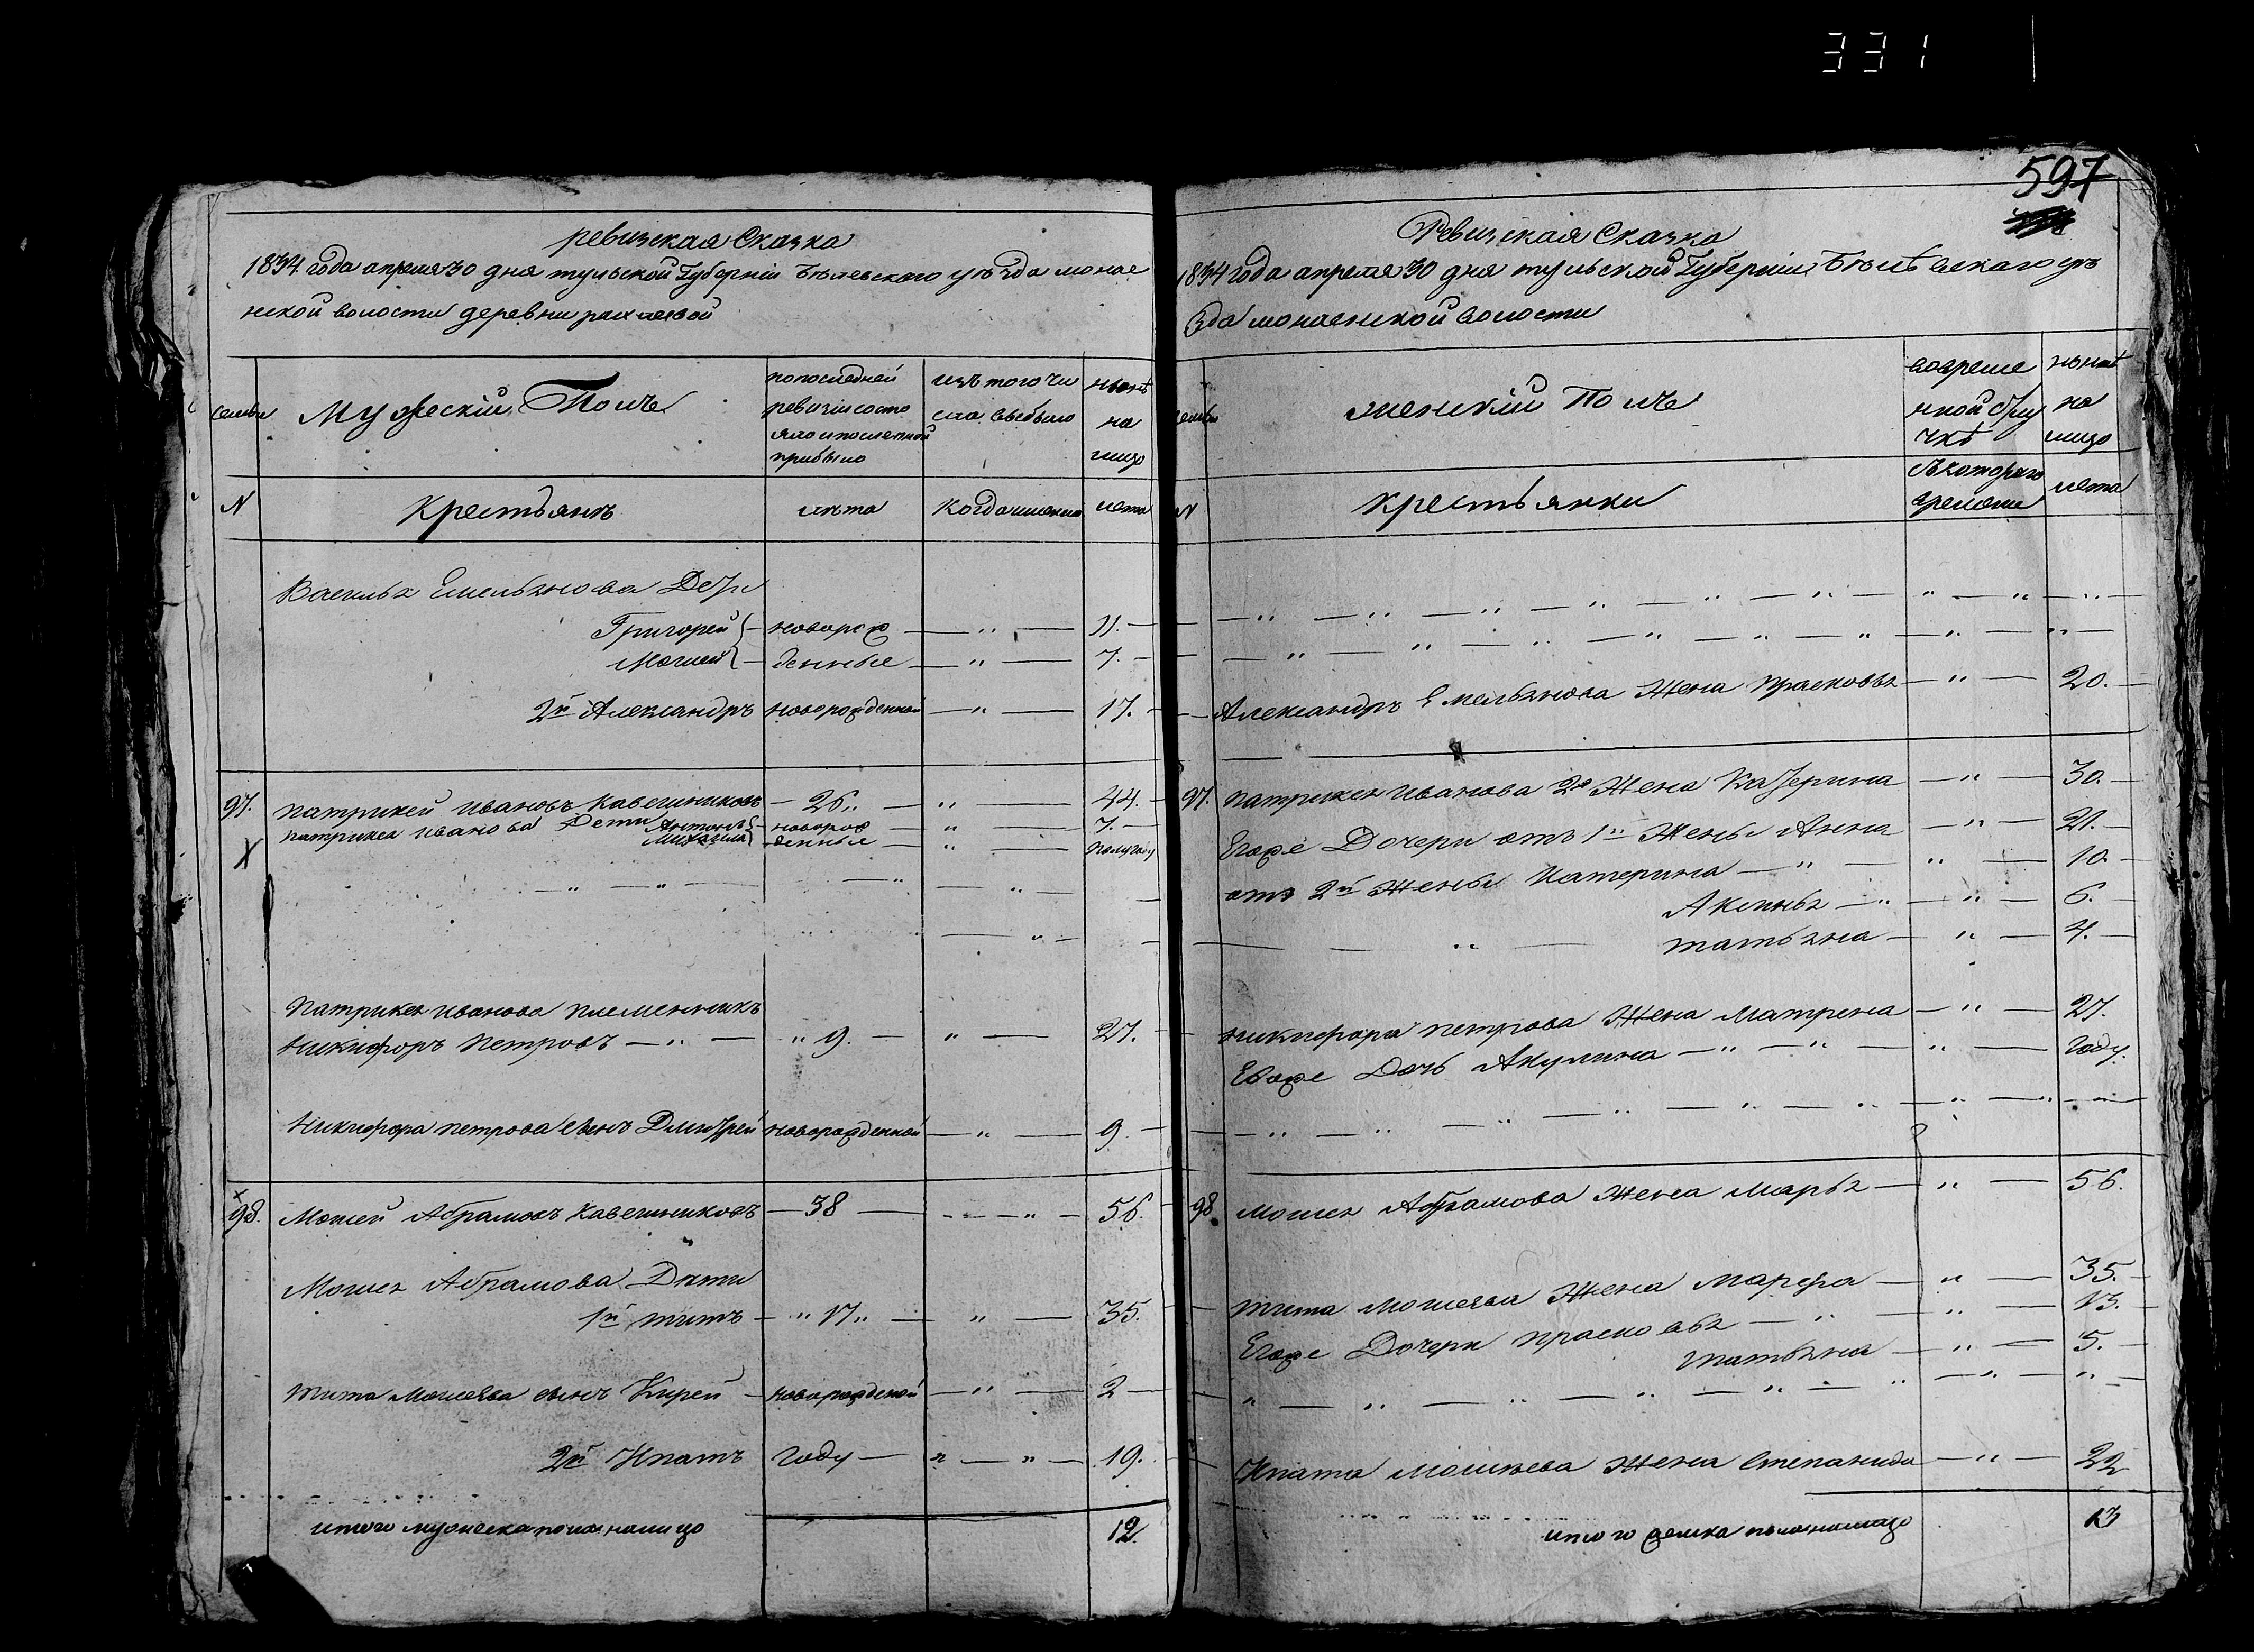 331
597
ревизская Сказка
1834 года апреля 30 дня тульской Губернiи Бѣлевского уѣзда монае
нской волости деревни
семьи
Мужескiй Полъ
по последней
ревизiи состо
яло и после оной
прибыло
изъ того чи
сла выбыло
нынѣ
на
лицо
N
Крестьянъ
лѣта
Когда именно
лета
Василья Емельянова Дети
Григорей — новорож — „ — 11.
Мосей — денные — „ — 7.
2й Александръ новорожденной — „ — 17.
97. патрикей ивановъ Кавешниковъ — 26 „ — „ — 44.
патрикея иванова Дети Антонъ — новорож — „ — 7.
Михаила — денные — „ — полугоду
X
Патрикея иванова племенникъ
Никифоръ Петровъ — „ — „ 9. — „ — 27.
Никифора петрова сынъ Дмитрей новорожденной — „ — 9.
х
98. Мосей Абрамовъ Кавешниковъ — 38 — „ — 56.
Мосея Абрамова Дѣти
1й титъ — „ 17 „ — „ — 35.
тита Мосеява сынъ Кирей — новорожденой — „ — 2
2й Ипатъ году — „ — „ — 19.
итого мужеска пола налицо 12.
Ревизская Сказка
1834 года апреля 30 дня тульской Губернiи Бѣлѣвскаго уѣ
зда монаенской волости
семьи
женскiй Полъ
вовреме
нной отлу
чкѣ
нынѣ
на
лицо
N
крестьянки
Съкотораго
времени
лета
Александръ Емельянова Жена прасковья — „ — 20.
97. патрикея иванова 2я Жена Катерина — „ — 30.
Егоже Дочери отъ 1й Жены Анна — „ — 21.
отъ 2й Жены Катерина — „ — „ — 10.
Аксинья — „ — „ — 6.
татьяна — „ — 4.
никифора петрова Жена Матрена — „ — 27.
Евоже Дочь Акулина — „ — „ — „ — году.
98. Мосея Абрамова Жена Марья — „ — 56.
тита мосеява Жена Марфа — „ — 35.
Егоже Дочери прасковья — „ — „ — 13.
татьяна — „ — 5.
Ипата Мосѣева Жена Степанида — „ — 22
итого женска пола налицо 13